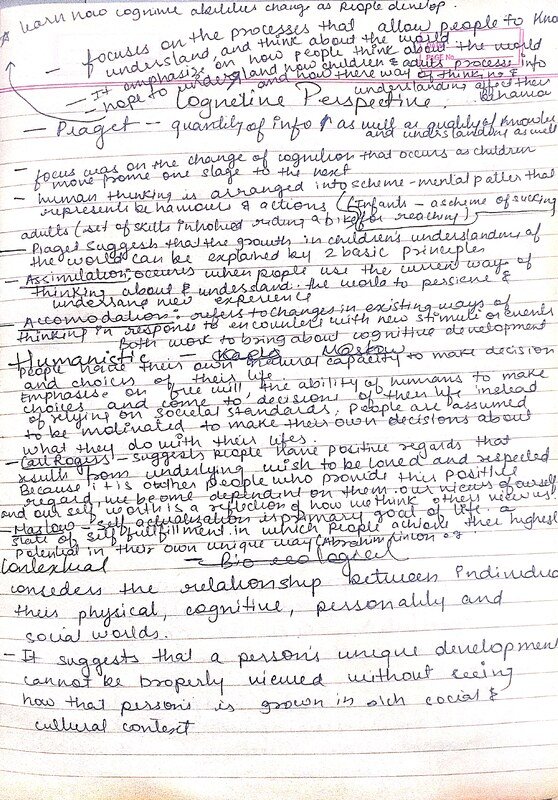 learn how cognitive abilities change as people develop.
- focuses on the processes that allow people to know
understand, and think about the world
- It emphasize on how people think about the world
- hope to understand how children & adults process info
and how there way of thinking &
understanding affect their
behaviour
Cognetive Perspective.
- Piaget - quantity of info ↑ as well as quality of knowledge
and understanding as well
- focus was on the change of cognition that occurs as children
move from one stage to the next
- human thinking is arranged into scheme - mental patter that
represent behaviours & actions (Infants - a scheme of sucking
adults (set of skills in riding a bike for reaching)
- Piaget suggest that the growth in children's understanding of
the world can be explained by 2 basic principles
- Assimilation: occurs when people use the current way of
thinking about & understand the world to persieve &
understand new experience
- Accomodation: refers to changes in existing ways of
thinking in response to encounters with new stimuli or events
Both work to bring about cognitive development
Humanistic -
people have their own natural capacity to make decision
and choices of their life
Emphasise on free will, the ability of humans to make
choices and come to decisions of their life instead
of relying on societal standards. People are assumed
to be motivated to make their own decisions about
what they do with their lifes.
- Carl Rogers - suggests people have positive regards that
results from underlying wish to be loved and respected
Because it is other people who provide this positive
regard, we become dependent on them. our views of ourself
and our self worth is a reflection of how we think others view us.
- Maslow - self actualisation is primary goal of life. a
state of self fulfillment in which people achieve their highest
potential in their own unique way (Abraham lincon e.g
Contextual - Bio ecological
considers the relationship between individual
their physical, cognitive, personality and
social worlds.
- It suggests that a person's unique development
cannot be properly viewed without seeing
how that person's is grown in rich social &
cultural context